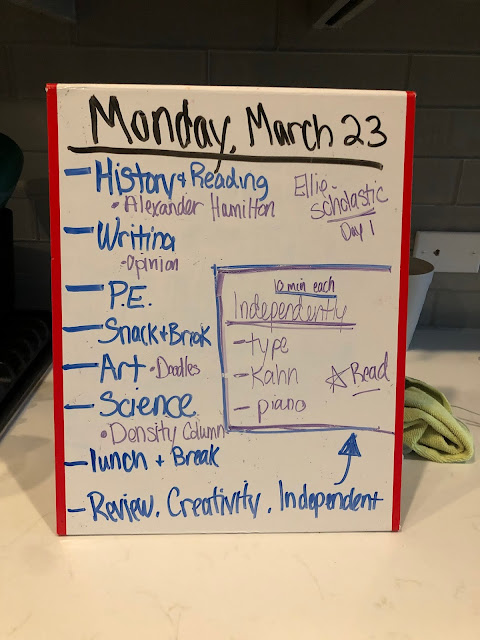 Monday, March 23
— History + Reading
• Alexander Hamilton
Ellie -
scholastic
Day 1
— Writing
• Opinion
— P.E.
— Snack + Break
— Art • Doodles
— Science
• Density Column
— lunch + Break
— Review. Creativity. Independent
10 min each
Independently
- type
- Kahn
- piano
☆ Read